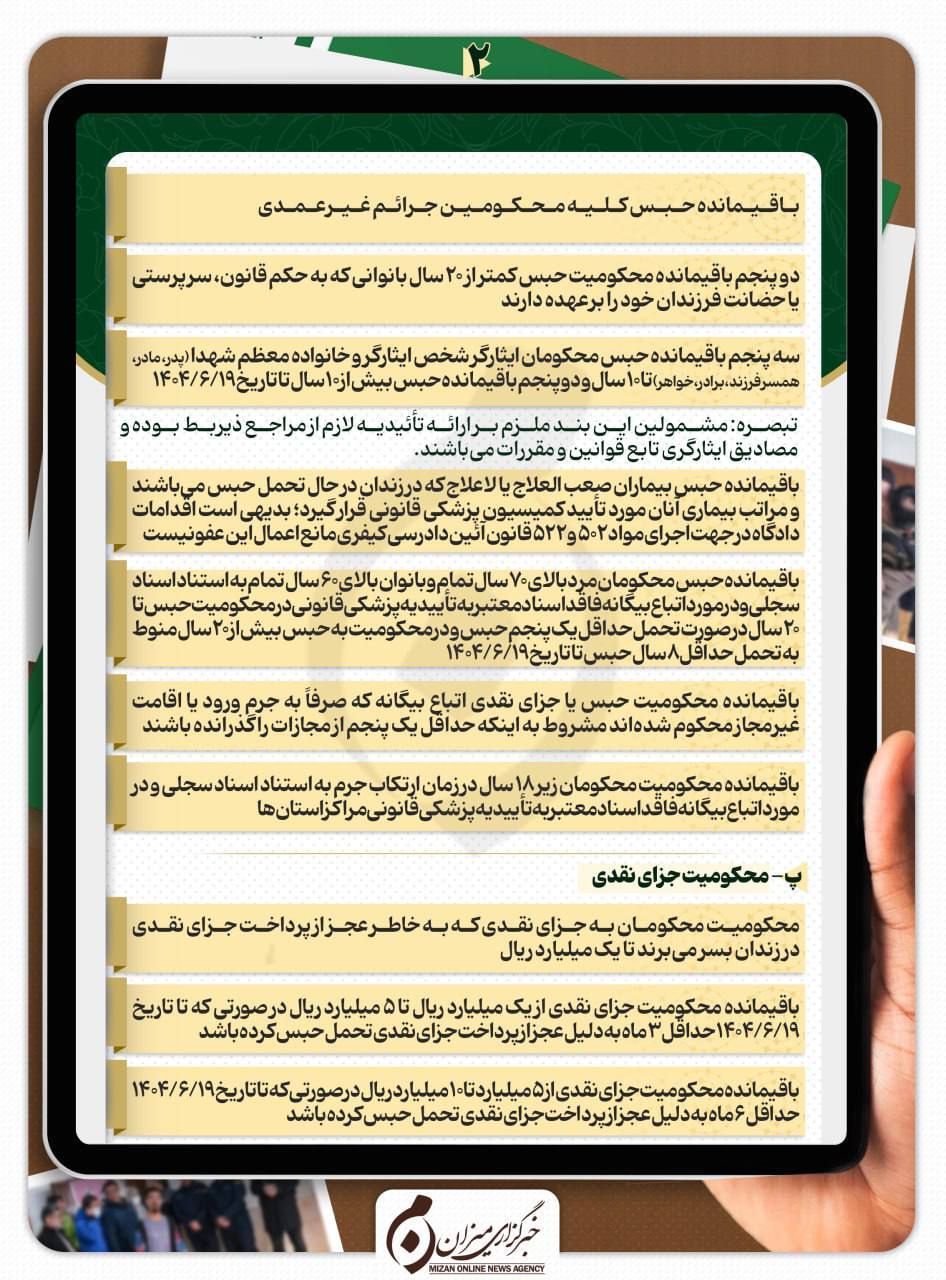 ۲
باقیمانده حبس کلیه محکومین جرائم غیرعمدی
دو پنجم باقیمانده محکومیت حبس کمتر از ۲۰ سال بانوانی که به حکم قانون، سرپرستی
یا حضانت فرزندان خود را برعهده دارند
سه پنجم باقیمانده حبس محکومان ایثارگر شخص ایثارگر و خانواده معظم شهدا (پدر، مادر،
همسر فرزند، برادر، خواهر) تا ۱۰ سال و دو پنجم باقیمانده حبس بیش از ۱۰ سال تا تاریخ ۱۴۰۴/۶/۱۹
تبصره: مشمولین این بند ملزم بر ارائه تأئیدیه لازم از مراجع ذیربط بوده و
مصادیق ایثارگری تابع قوانین و مقررات می‌باشند.
باقیمانده حبس بیماران صعب العلاج یا لاعلاج که در زندان در حال تحمل حبس می‌باشند
و مراتب بیماری آنان مورد تأیید کمیسیون پزشکی قانونی قرار گیرد؛ بدیهی است اقدامات
دادگاه در جهت اجرای مواد ۵۰۲ و ۵۲۲ قانون آئین دادرسی کیفری مانع اعمال این عفو نیست
باقیمانده حبس محکومان مرد بالای ۷۰ سال تمام و بانوان بالای ۶۰ سال تمام به استناد اسناد
سجلی و در مورد اتباع بیگانه فاقد اسناد معتبر به تأییدیه پزشکی قانونی در محکومیت حبس تا
۲۰ سال در صورت تحمل حداقل یک پنجم حبس و در محکومیت به حبس بیش از ۲۰ سال منوط
به تحمل حداقل ۸ سال حبس تا تاریخ ۱۴۰۴/۶/۱۹
باقیمانده محکومیت حبس یا جزای نقدی اتباع بیگانه که صرفاً به جرم ورود یا اقامت
غیرمجاز محکوم شده‌اند مشروط به اینکه حداقل یک پنجم از مجازات را گذرانده باشند
باقیمانده محکومیت محکومان زیر ۱۸ سال در زمان ارتکاب جرم به استناد اسناد سجلی و در
مورد اتباع بیگانه فاقد اسناد معتبر به تأییدیه پزشکی قانونی مراکز استان‌ها
پ- محکومیت جزای نقدی
محکومیت محکومان به جزای نقدی که به خاطر عجز از پرداخت جزای نقدی
در زندان بسر می‌برند تا یک میلیارد ریال
باقیمانده محکومیت جزای نقدی از یک میلیارد ریال تا ۵ میلیارد ریال در صورتی که تا تاریخ
۱۴۰۴/۶/۱۹ حداقل ۳ ماه به دلیل عجز از پرداخت جزای نقدی تحمل حبس کرده باشد
باقیمانده محکومیت جزای نقدی از ۵ میلیارد تا ۱۰ میلیارد ریال در صورتی که تا تاریخ ۱۴۰۴/۶/۱۹
حداقل ۶ ماه به دلیل عجز از پرداخت جزای نقدی تحمل حبس کرده باشد
خبرگزاری میزان
MIZAN ONLINE NEWS AGENCY